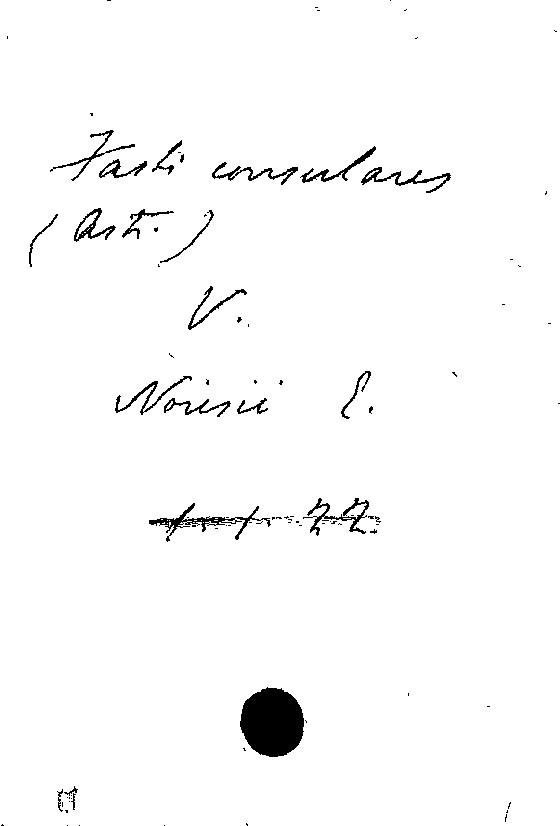 Fasti consulares
(Asti.)
V.
Norisii E.